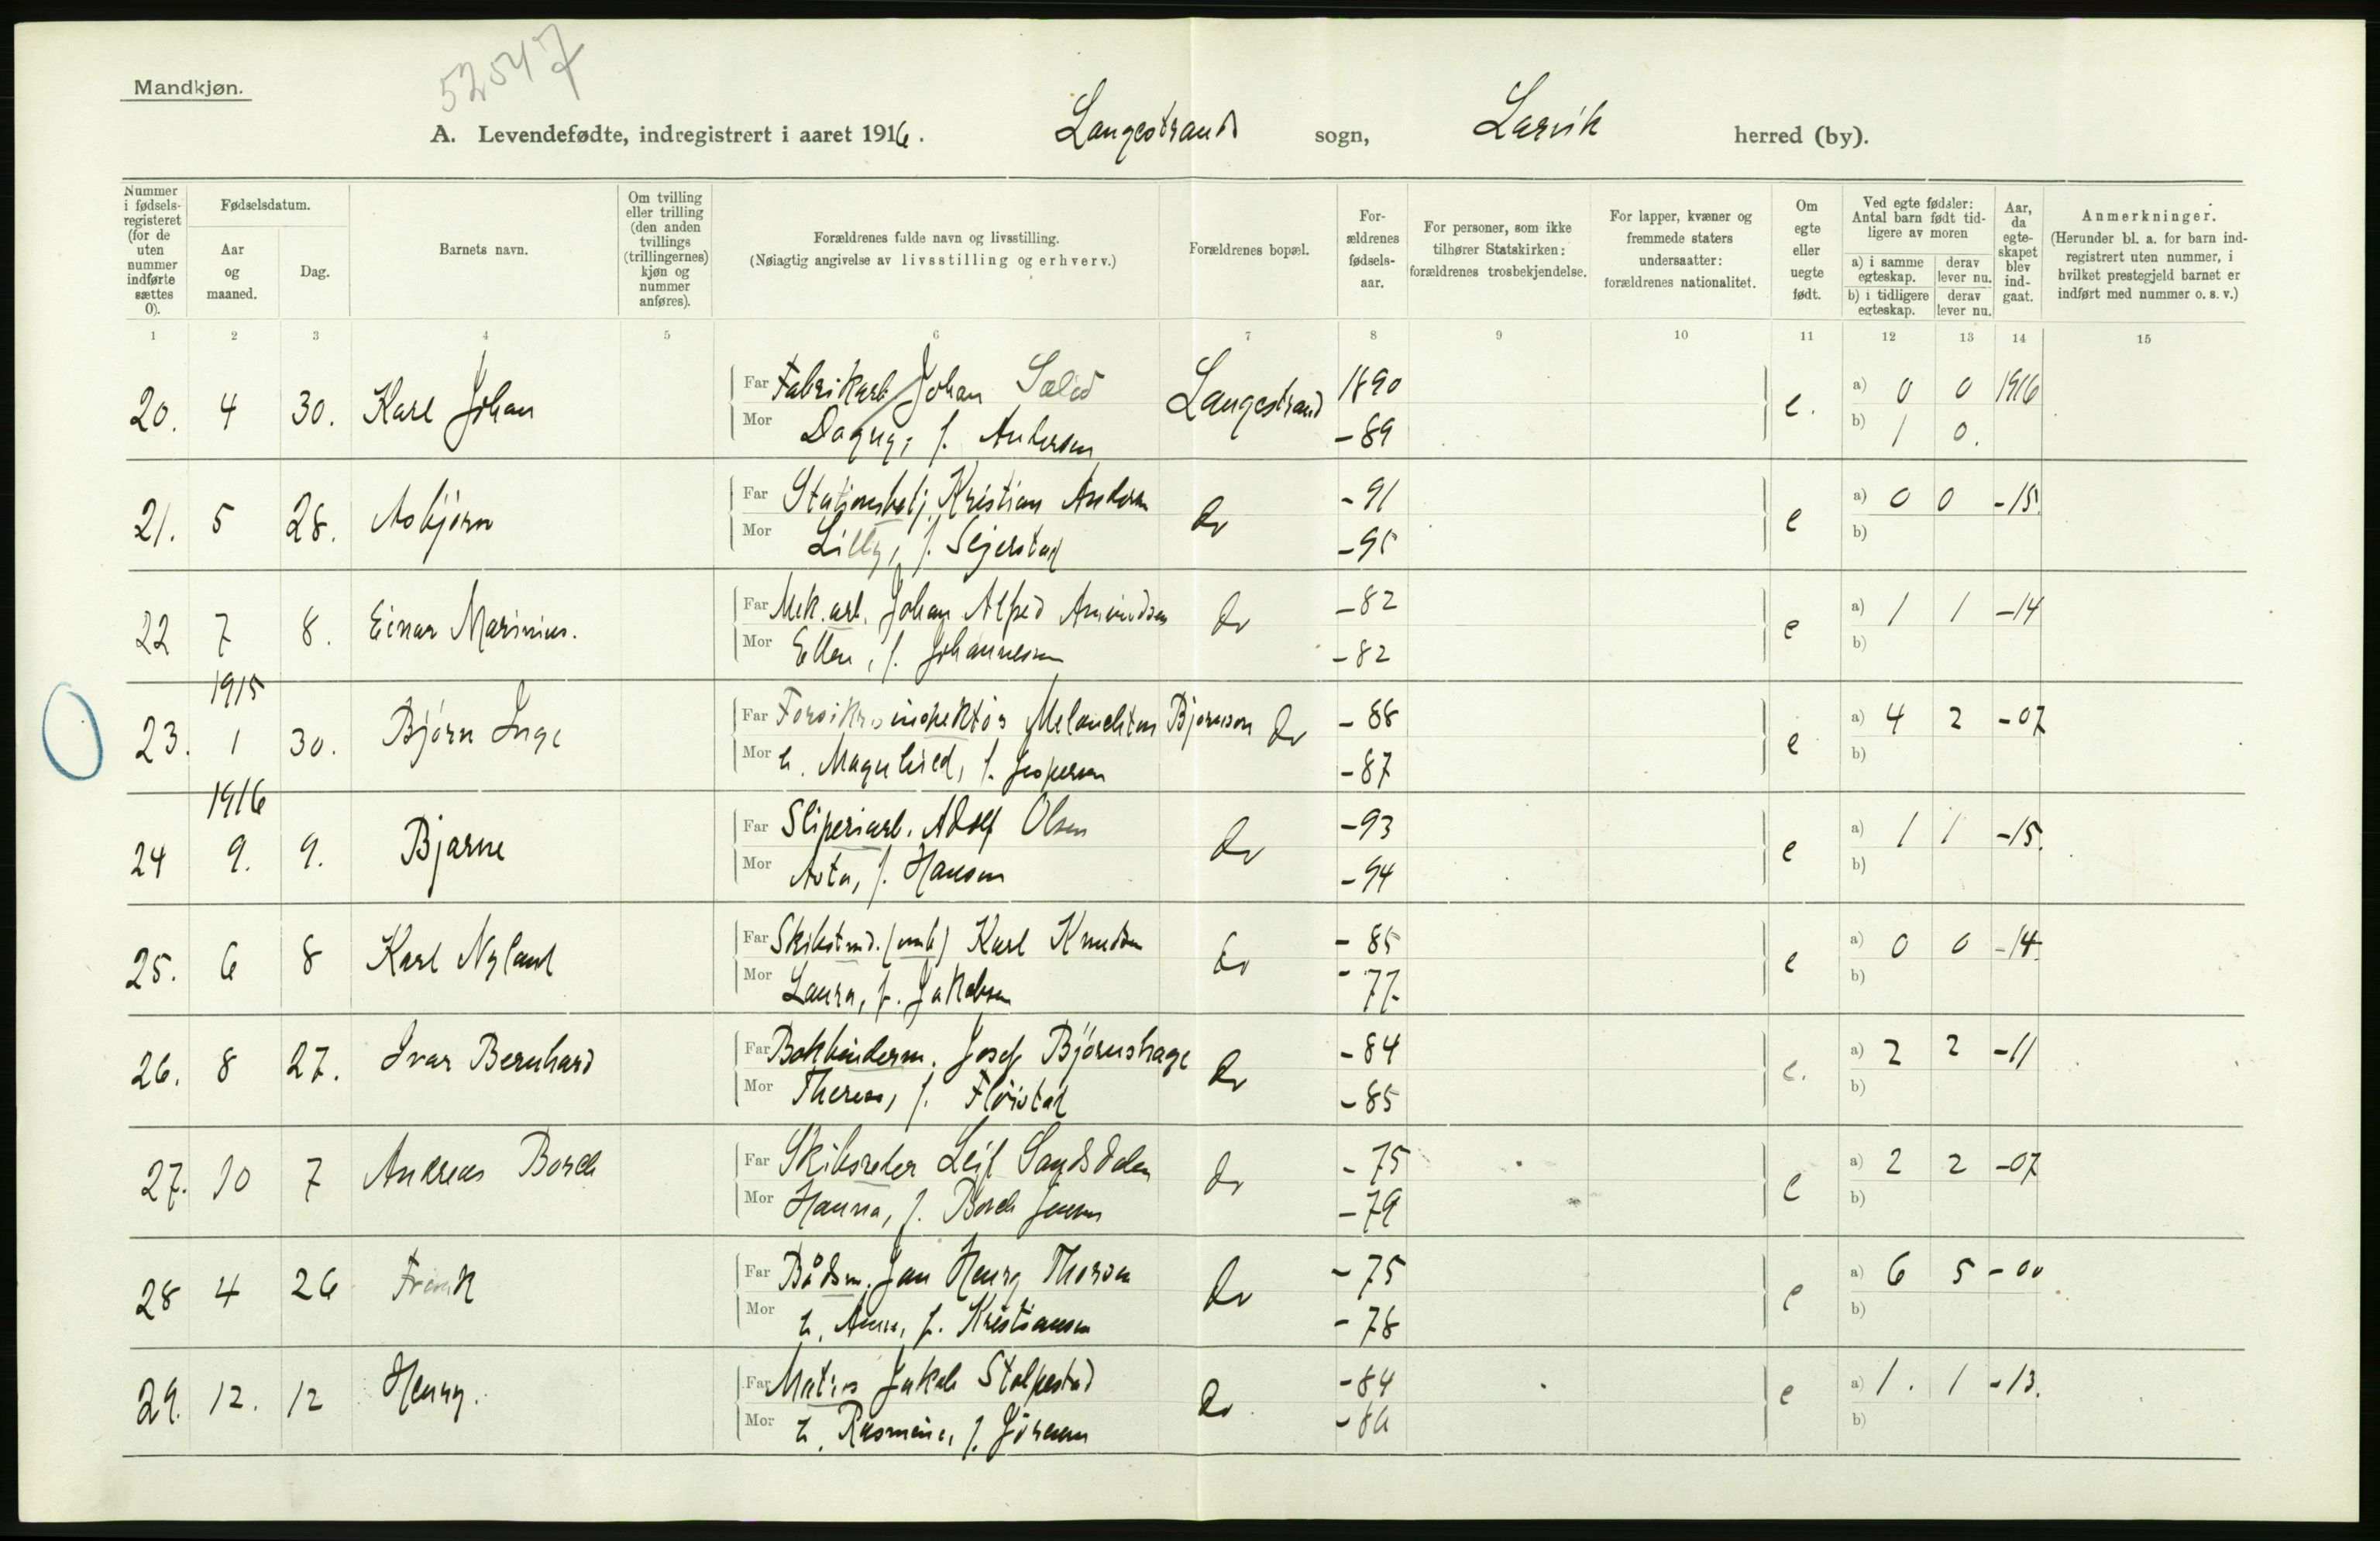 52547
Mandkjøn.
A. Levendefødte, indregistrert i aaret 1916. Langestrand sogn, Larvik herred (by).
Nummer i fødselsregisteret (for de uten nummer indførte sættes 0).
Fødselsdatum.
Aar og maaned.
Dag.
Barnets navn.
Om tvilling eller trilling (den anden tvillings (trillingernes) kjøn og nummer anføres).
Forældrenes fulde navn og livsstilling.
(Nøiagtig angivelse av livsstilling og erhverv.)
Forældrenes bopæl.
For-ældrenes fødsels-aar.
For personer, som ikke tilhører Statskirken: forældrenes trosbekjendelse.
For lapper, kvæner og fremmede staters undersaatter: forældrenes nationalitet.
Om egte eller uegte født.
Ved egte fødsler: Antal barn født tidligere av moren
a) i samme egteskap. derav lever nu.
b) i tidligere egteskap. derav lever nu.
Aar, da egteskapet blev indgaat.
Anmerkninger.
(Herunder bl. a. for barn indregistrert uten nummer, i hvilket prestegjeld barnet er indført med nummer o. s. v.)
1 2 3 4 5 6 7 8 9 10 11 12 13 14 15
20. 4 30. Karl Johan Far Fabrikarb Johan Langestrand 1890 e. a) 0 0 1916
Mor Dagny, f. Andersen -89 b) 1 0.
21. 5 28. Asbjørn Far Stationsbetj. Kristian Andersen Do -91 e a) 0 0 -15.
Mor Lilly, f. Sejerstad -95 b)
22 7 8. Einar Marinius. Far Mek. arb. Johan Alfred Amundsen Do -82 e a) 1 1 -14
Mor Ellen, f. Johannesen -82 b)
1915
23. 1 30. Bjørn Inge Far Forsikr.sinspektør Melanchton Bjørnson Do -88 e a) 4 2 -07
Mor h. Magnhild, f. Jespersen -87 b)
1916
24 9. 9. Bjarne Far Sliperiarb. Adolf Olsen Do -93 e a) 1 1 -15.
Mor Asta, f. Hansen -94 b)
25. 6 8 Karl Nyland Far Karl Knudsen Do -85 e a) 0 0 -14
Mor Laura, f. Jakobsen -77. b)
26. 8 27. Ivar Bernhard Far Bokbinderm. Josef Bjørnshage Do -84 e. a) 2 2 -11
Mor Therese, f. Fløistad -85 b)
27. 10 7 Andreas Borch Far Skibsreder Leif Do -75 e a) 2 2 -07
Mor Hanna, f. Borch Jensen -79 b)
28 4 26 Frank Far Bådsm. Jan Henry Thorsen Do -75 e a) 6 5 -00
Mor h. Anna, f. Kristiansen -78 b)
29. 12. 12 Henry. Far Matros Jakob Stolpestad Do -84 e a) 1. 1 -13.
Mor h. Rasmine, f. Jørgensen -86 b)